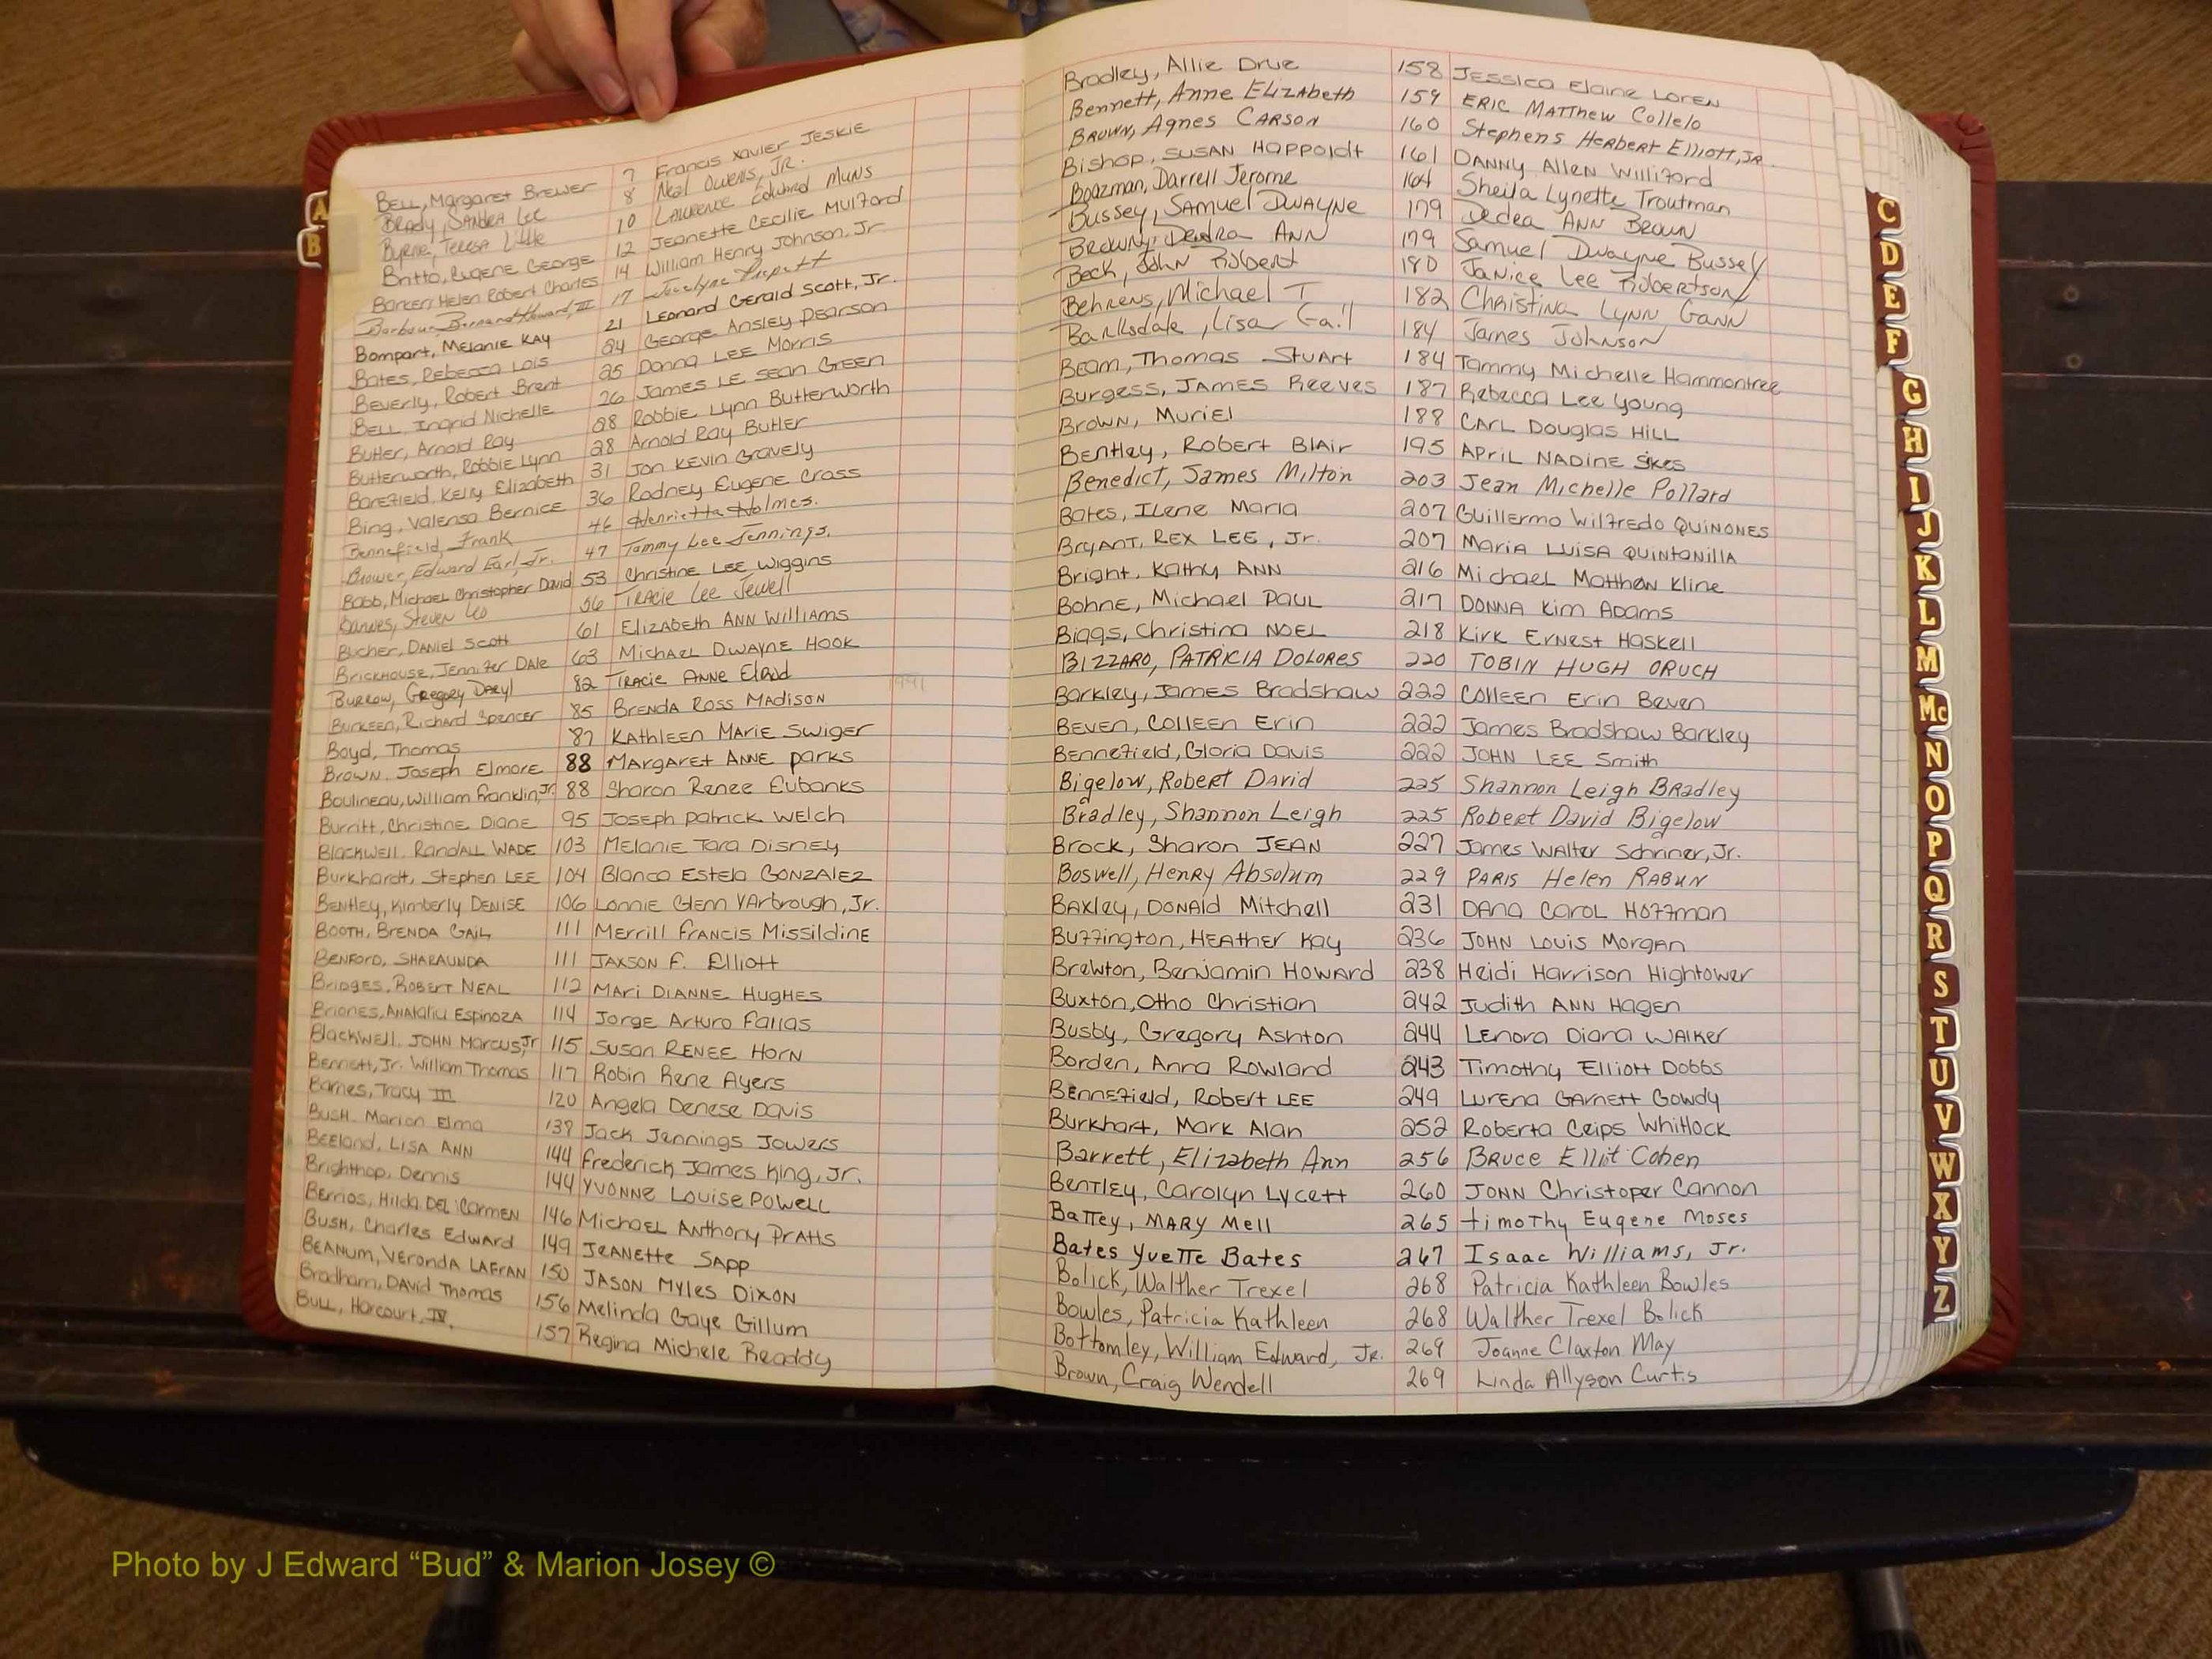 A
B
BELL, Margaret Brewer 7 Francis Xavier JESKIE
BRady, SANdRA LEE 8 Neal Owens, JR.
Byrne, Teresa Little 10 LAWRENCE Edward MUNS
Britto, Eugene George 12 JEANETTE CECILIE MULFORD
Barker, Helen Robert Charles 14 William Henry Johnson, Jr.
Barbour Bernard Howard, III 17 Jocelyne
Bompart, MELANIE KAY 21 LEONARD GERALD SCOTT, Jr.
Bates, REBECCA LOIS 24 GEORGE ANSLEY PEARSON
BEVERLY, Robert Brent 25 Donna LEE MORRIS
BELL, Ingrid Nichelle 26 JAMES LE SEAN GREEN
Butler, Arnold Ray 28 Robbie Lynn Butterworth
Butterworth, Robbie Lynn 28 Arnold Ray Butler
BAREFIELD, KELLY Elizabeth 31 JON KEVIN Gravely
Bing, Valensa Bernice 36 Rodney Eugene Cross
Bennefield, Frank 46 Henrietta Holmes.
Brower, Edward Earl, Jr. 47 Tammy Lee Jennings.
Babb, Michael Christopher David 53 Christine LEE Wiggins
Barwes, Steven Leo 56 TRACIE Lee Jewell
Bucher, DANIEL Scott 61 ELIZABETH ANN WILLIAMS
BRICKHOUSE, JENNIFER DALE 63 MICHAEL DWAYNE HOOK
Burrow, Gregory Daryl 82 TRACIE ANNE Elrod
Burkeen, Richard Spencer 85 BRENDA ROSS MADISON 1991
Boyd, Thomas 87 KATHLEEN MARIE SWIGER
BROWN, Joseph Elmore 88 MARGARET ANNE parks
Boulineau, William Franklin, Jr. 88 Sharon Renee Eubanks
Burritt, Christine Diane 95 JOSEPH Patrick WELCH
Blackwell, RANDALL WADE 103 MELANIE TARA DISNEY
Burkhardt, Stephen LEE 104 Blanca Estela GONZALEZ
BENTLEY, Kimberly DENISE 106 LONNIE Glenn YArbrough, Jr.
BOOTH, BRENDA GAIL 111 Merrill Francis Missildine
BENFORD, SHARAUNDA 111 JAXSON F. Elliott
BRIDGES, ROBERT NEAL 112 MARI DIANNE HUGHES
BRIONES, ANATALIU ESPINOZA 114 JORGE Arturo Fallas
Blackwell, JOHN MARCUS, Jr 115 SUSAN RENEE HORN
Bennett, Jr. William Thomas 117 Robin Rene Ayers
Barnes, Tracy III 120 Angela Denese Davis
BUSH, Marion Elma 139 Jack Jennings JOWERS
BEELAND, LISA ANN 144 Frederick James King, Jr.
Brighthop, Dennis 144 YVONNE LOUISE POWELL
BERRIOS, Hilda DEL CARMEN 146 MICHAEL ANTHONY PRATTS
BUSH, Charles EDWARD 149 JEANETTE SAPP
BEANUM, VERONDA LAFRAN 150 JASON MYLES DIXON
Bradham, DAVID Thomas 156 Melinda Gaye Gillum
BULL, Harcourt, IV. 157 Regina Michele Readdy
Bradley, Allie Drue 158 JESSICA Elaine LOREN
Bennett, Anne ELIZAbeth 159 ERIC MATThew Collelo
BROWN, Agnes CARSON 160 Stephens HERBERT Elliott, JR.
Bishop, SUSAN Happoldt 161 DANNY Allen Williford
Boazman, Darrell Jerome 164 Sheila Lynette Troutman
Bussey, SAMUEL DWAYNE 179 Dedea ANN BROWN
BROWN, Deadra ANN 179 Samuel Dwayne Bussey
Beck, John Robert 180 Janice Lee Robertson
Behrens, Michael T 182 Christina Lynn Gann
Barksdale, Lisa Gail 184 James Johnson
Beam, Thomas Stuart 184 Tammy Michelle Hammontree
Burgess, JAMES REEVES 187 Rebecca Lee Young
Brown, Muriel 188 CARL Douglas HILL
Bentley, Robert Blair 195 APRIL NADINE Sikes
Benedict, James Milton 203 Jean Michelle Pollard
Bates, Ilene Maria 207 Guillermo Wilfredo QUINONES
BRYANT, REX LEE, Jr. 207 MARIA LUISA QUINTANILLA
Bright, Kathy ANN 216 Michael Matthew Kline
Bohne, Michael PAUL 217 DONNA Kim ADAMS
Biggs, Christina NOEL 218 Kirk Ernest Haskell
BIZZARO, PATRICIA DOLORES 220 TOBIN HUGH ORUCH
Barkley, James Bradshaw 222 Colleen Erin Beven
BEVEN, COLLEEN ERIN 222 James Bradshaw Barkley
Bennefield, Gloria Davis 222 JOHN LEE Smith
Bigelow, Robert David 225 Shannon Leigh BRadley
Bradley, Shannon Leigh 225 Robert David Bigelow
Brock, Sharon JEAN 227 James Walter Schriner, Jr.
Boswell, Henry Absolum 229 PARIS Helen RABUN
BAXLEY, DONALD Mitchell 231 DANA CAROL HOFFMAN
Buffington, HEATHER Kay 236 JOHN LOUIS MORGAN
Brewton, Benjamin HOWARD 238 Heidi Harrison Hightower
Buxton, Otho Christian 242 Judith ANN Hagen
Busby, Gregory Ashton 244 LENORA DIANA WALKER
Borden, Anna Rowland 243 Timothy Elliott Dobbs
BENNEFIELD, ROBERT LEE 249 LURENA GARNETT Gowdy
Burkhart, Mark Alan 252 Roberta Crips Whitlock
Barrett, Elizabeth Ann 256 BRUCE Elliot Cohen
BENTLEY, Carolyn Lycett 260 JOHN Christoper Cannon
Battey, MARY Mell 265 timothy Eugene Moses
Bates Yvette Bates 267 Isaac Williams, Jr.
Bolick, Walther Trexel 268 Patricia Kathleen Bowles
Bowles, Patricia Kathleen 268 Walther Trexel Bolick
Bottomley, William Edward, Jr. 269 Joanne Claxton May
Brown, Craig Wendell 269 Linda Allyson Curtis
C
D
E
F
G
H
I
J
K
L
M
Mc
N
O
P
Q
R
S
T
U
V
W
X
Y
Z
Photo by J Edward “Bud” & Marion Josey ©